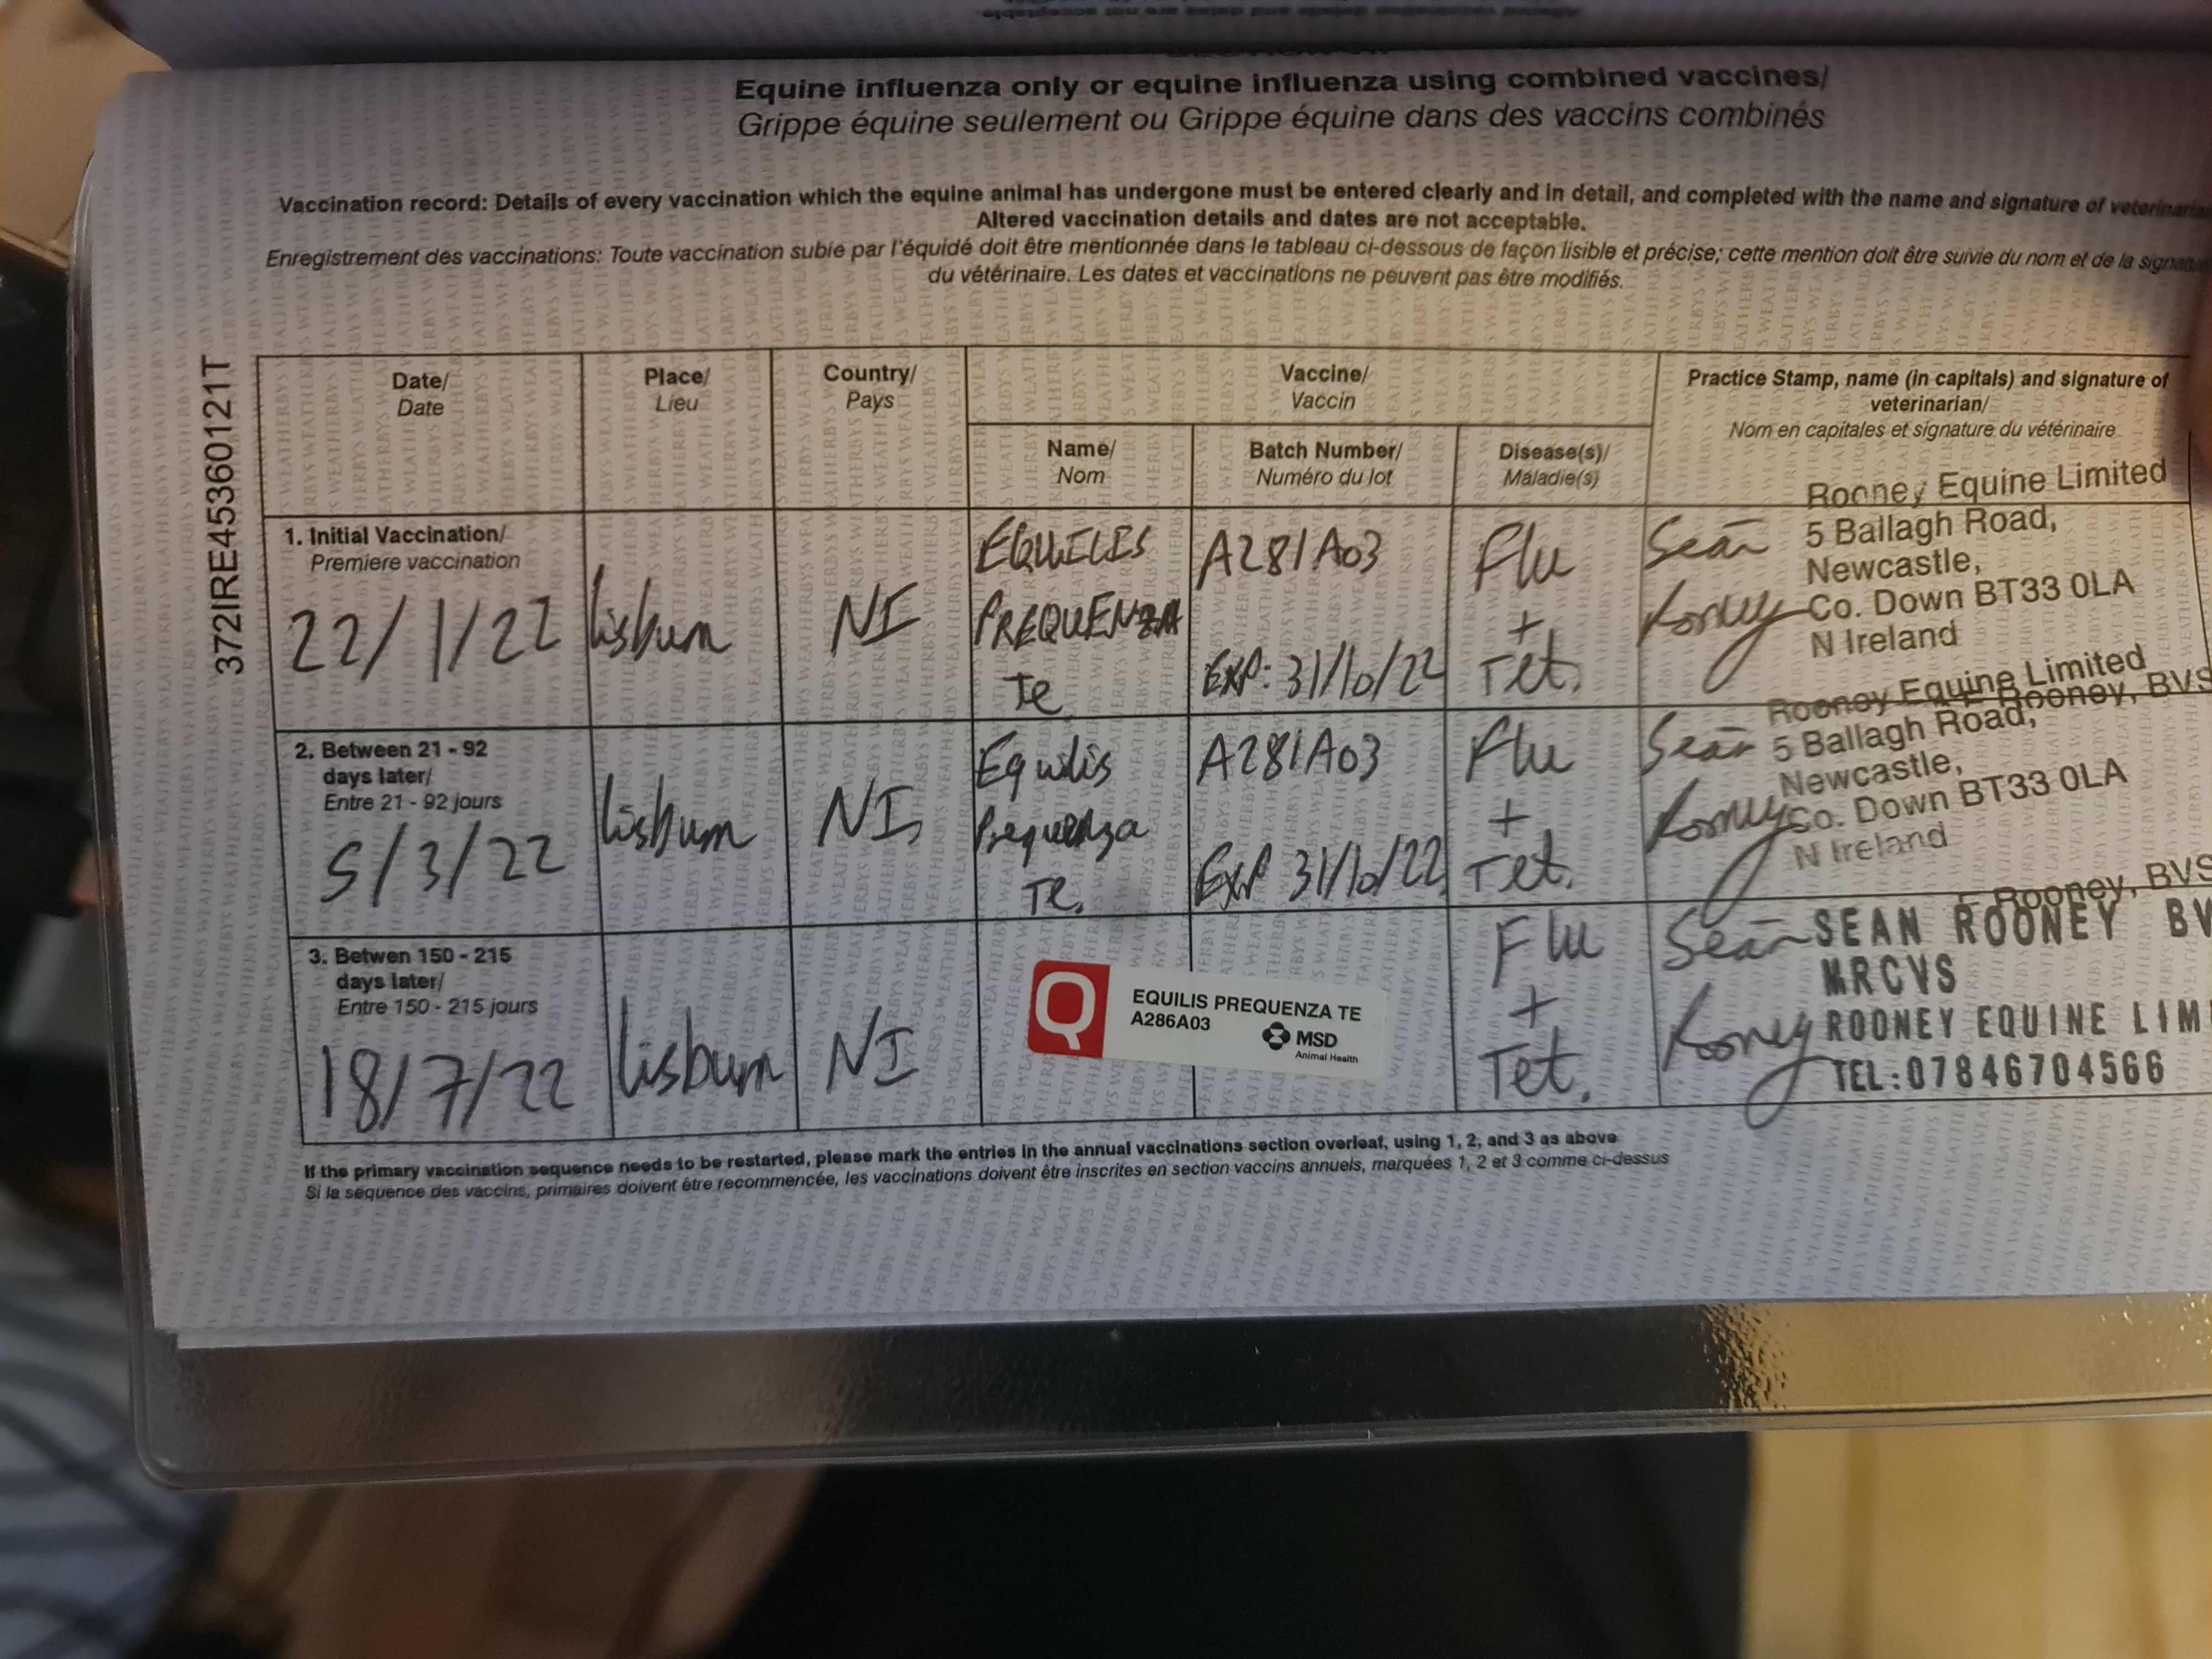 Altered vaccination details and dates are not acceptable.
Equine influenza only or equine influenza using combined vaccines/
Grippe équine seulement ou Grippe équine dans des vaccins combinés
Vaccination record: Details of every vaccination which the equine animal has undergone must be entered clearly and in detail, and completed with the name and signature of veterinarian
Altered vaccination details and dates are not acceptable.
Enregistrement des vaccinations: Toute vaccination subie par l'équidé doit être mentionnée dans le tableau ci-dessous de façon lisible et précise; cette mention doit être suivie du nom et de la signature
du vétérinaire. Les dates et vaccinations ne peuvent pas être modifiés.
372IRE45360121T
Date/
Date
Place/
Lieu
Country/
Pays
Vaccine/
Vaccin
Name/
Nom
Batch Number/
Numéro du lot
Disease(s)/
Maladie(s)
Practice Stamp, name (in capitals) and signature of
veterinarian/
Nom en capitales et signature du vétérinaire
1. Initial Vaccination/
Premiere vaccination
22/1/22
Lisburn
NI
EQUILIS
PREQUENZA
Te
A281A03
EXP: 31/10/22
Flu
+
Tet.
Seán
Rooney
Rooney Equine Limited
5 Ballagh Road,
Newcastle,
Co. Down BT33 0LA
N Ireland
Rooney, BVS
2. Between 21 - 92
days later/
Entre 21 - 92 jours
5/3/22
Lisburn
NI
Equilis
Prequenza
Te.
A281A03
EXP 31/10/22
Flu
+
Tet.
Seán
Rooney
Rooney Equine Limited
5 Ballagh Road,
Newcastle,
Co. Down BT33 0LA
N Ireland
Rooney, BVS
3. Betwen 150 - 215
days later/
Entre 150 - 215 jours
18/7/22
Lisburn
NI
Q
EQUILIS PREQUENZA TE
A286A03
MSD
Animal Health
Flu
+
Tet.
Seán
Rooney
SEAN ROONEY BV
MRCVS
ROONEY EQUINE LIM
TEL:07846704566
If the primary vaccination sequence needs to be restarted, please mark the entries in the annual vaccinations section overleaf, using 1, 2, and 3 as above
Si la séquence des vaccins, primaires doivent être recommencée, les vaccinations doivent être inscrites en section vaccins annuels, marquées 1, 2 et 3 comme ci-dessus